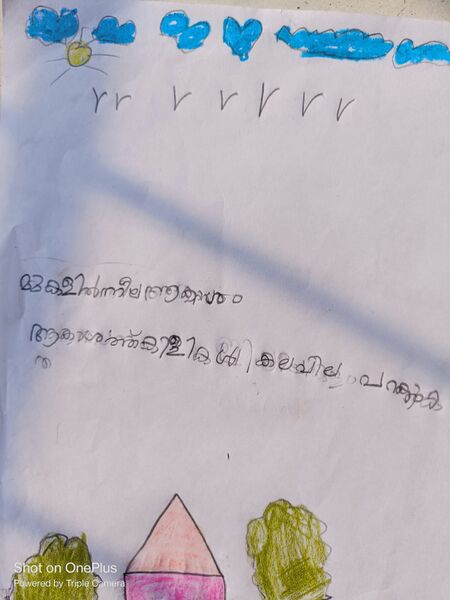 മുകളിൽ നീല ആകാശം
ആകാശത്ത് കിളികൾ കലപില പറക്കുക
Shot on OnePlus
Powered by Triple Camera